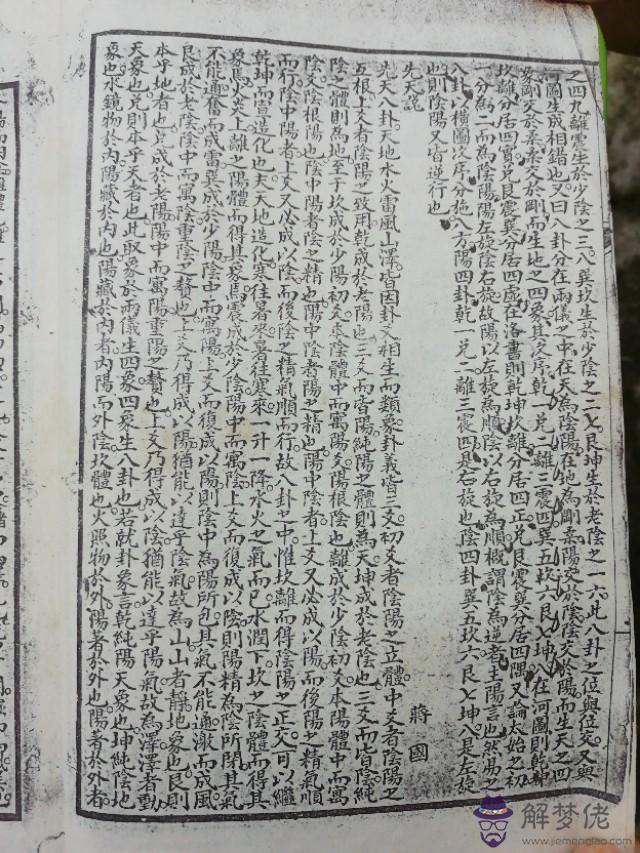 之四九離震生於少陰之三八巽坎生於少陰之二七艮坤生於老陰之一六此八卦之位與位交又與
河圖生成相錯也又曰八卦分在兩儀之中在天為陰陽在地為剛柔陽交於陰陰交於陽而生天之四
象剛交於柔柔交於剛而生地之四象其次序乾一兌二離三震四巽五坎六艮七坤八在河圖則乾坤
坎離分居四實兌艮震巽分居四虛在洛書則乾坤坎離分居四正兌艮震巽分居四隅又論太始之初
一分為二而為陰陽陽左旋陰右旋故陽以左旋為順陰以右旋為順概謂陰為逆者主陽言也然易之
八卦以橫圖次序分施八方陽四卦乾一兌二離三震四是右旋也陰四卦巽五坎六艮七坤八是左旋
也則陰陽又皆逆行也
先天說 蔣國
先天八卦天地水火雷風山澤皆因卦爻相生而類象卦義皆三爻初爻者陰陽之立體中爻者陰陽之
互根上爻者陰陽之致用乾成於老陽也三爻而皆陽純陽之體則為天坤成於老陰也三爻而皆陰純
陰之體則為地至于坎成於少陽初爻本陰體中而寓陽爻陽根陰也離成於少陰初爻本陽體中而寓
陰爻陰根陽也陰中陽者陰之精也陽中陰者陽之精也陽中陰者上爻又必成以陽而後陽之精氣順
而行陰中陽者上爻又必成以陰而後陰之精氣順而行故八卦之中惟坎離而得陰陽之正交可以繼
乾坤而言造化也夫天地造化寒往暑來暑往寒來一升一降水火之氣而已水潤下坎之陰體而得其
象焉火炎上離之陽體而得其象焉震成於少陰陽中而寓陰上爻而復成以陰則陽精為陰所閉其氣
不能適奮而成雷巽成於少陽陰中而寓陽上爻而復成以陽則陰中為陽所包其氣不能適瀜而成風
艮成於老陰陰中而寓陰重陰之贅也上爻乃得成以陽猶能以達乎陰氣故為山山者靜地象也艮則
本乎地者也兌成於老陽陽中而寓陽重陽之贅也上爻乃得成以陰猶能以達乎陽氣故為澤澤者動
天象也兌則本乎天者也此取象於兩儀生四象四象生八卦也若就卦象言乾純陽天象也坤純陰地
象也水鏡物於內陽藏於內也陽藏於內者內陽而外陰坎體也火照物於外陽著於外也陽著於外者
解梦佬
www.jiemenglao.com